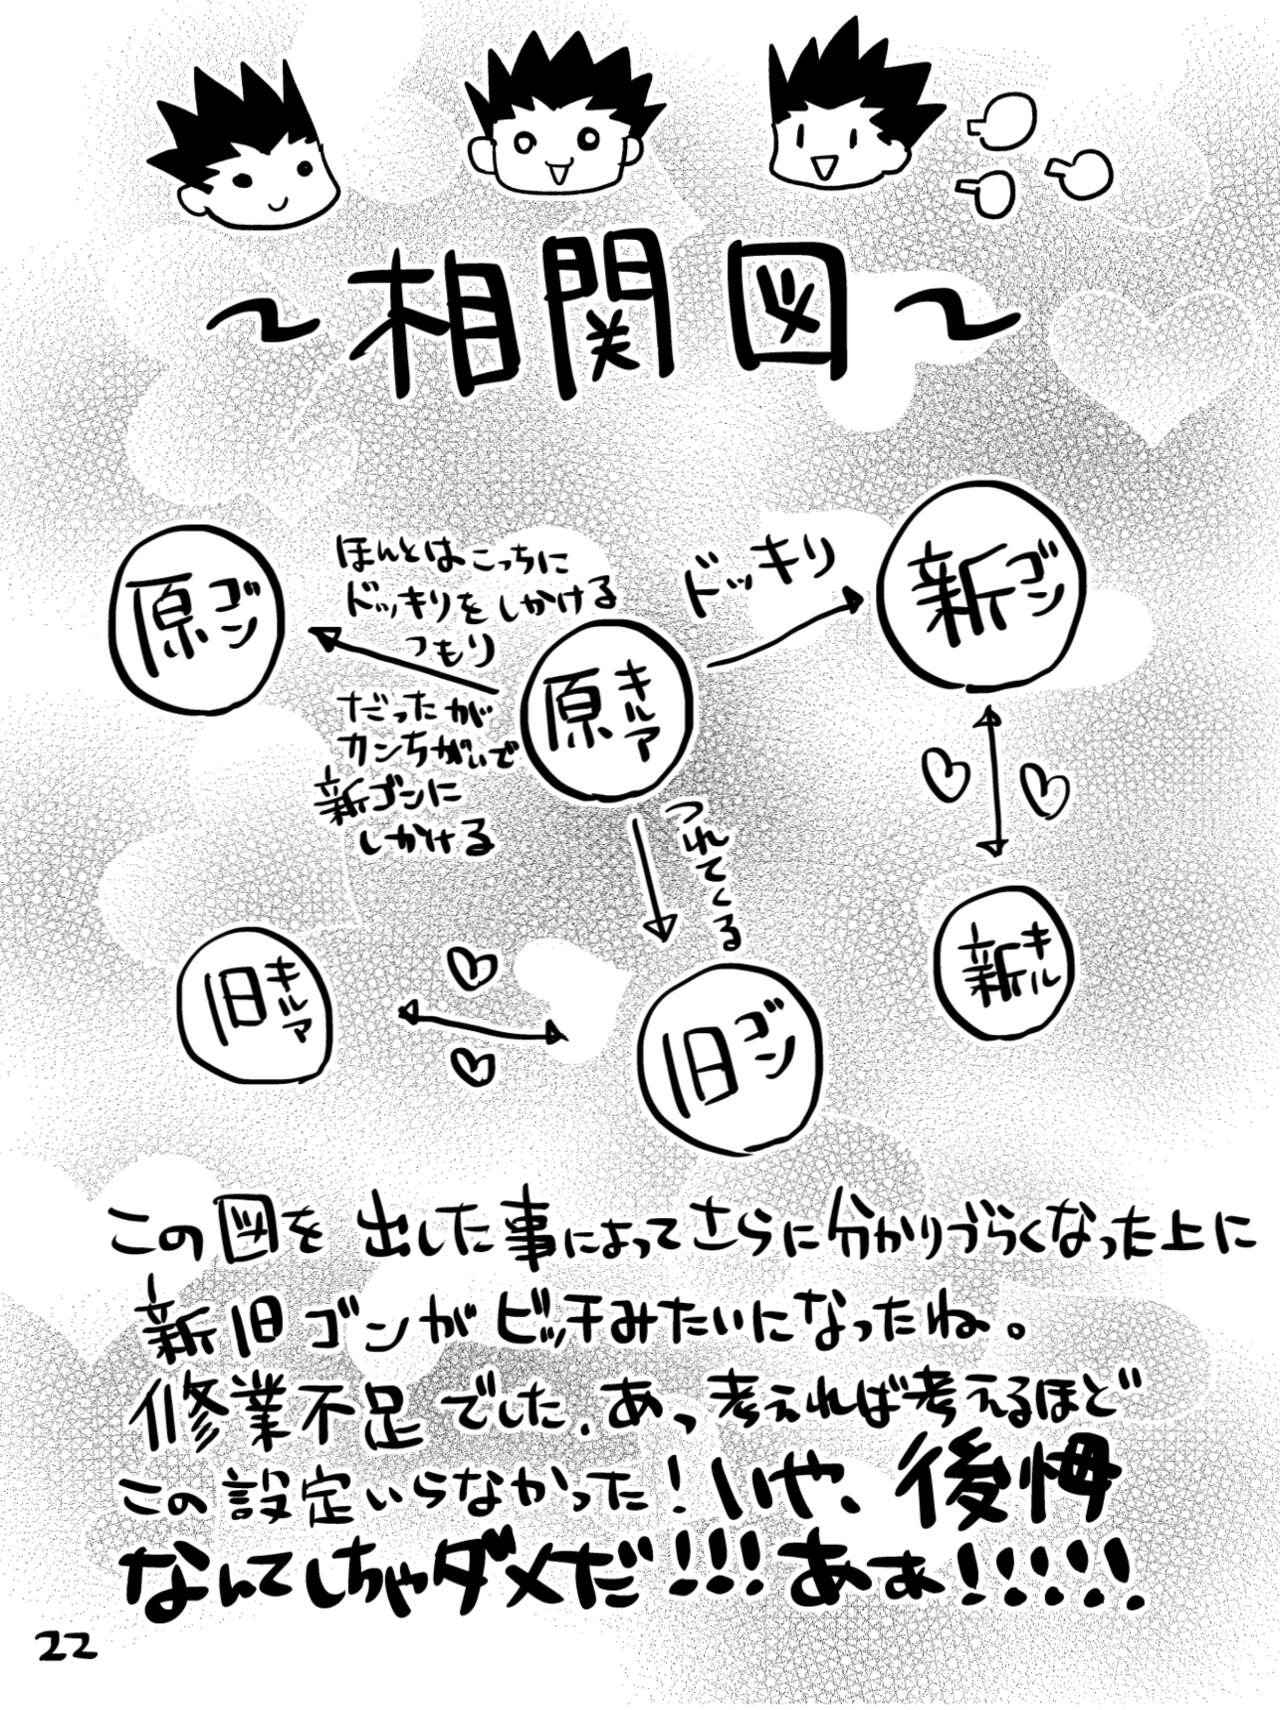 ～相関図～
原ゴン
ほんとはこっちに
ドッキリをしかける
つもり
だったが
カンちがいで
新ゴンに
しかける
原キルア
ドッキリ
新ゴン
つれてくる
旧キルア
旧ゴン
新キル
この図を出した事によってさらに分かりづらくなった上に
新旧ゴンがビッチみたいになったね。
修業不足でした。あっ考えれば考えるほど
この設定いらなかった!いや、後悔
なんてしちゃダメだ!!!ああ!!!!!
22